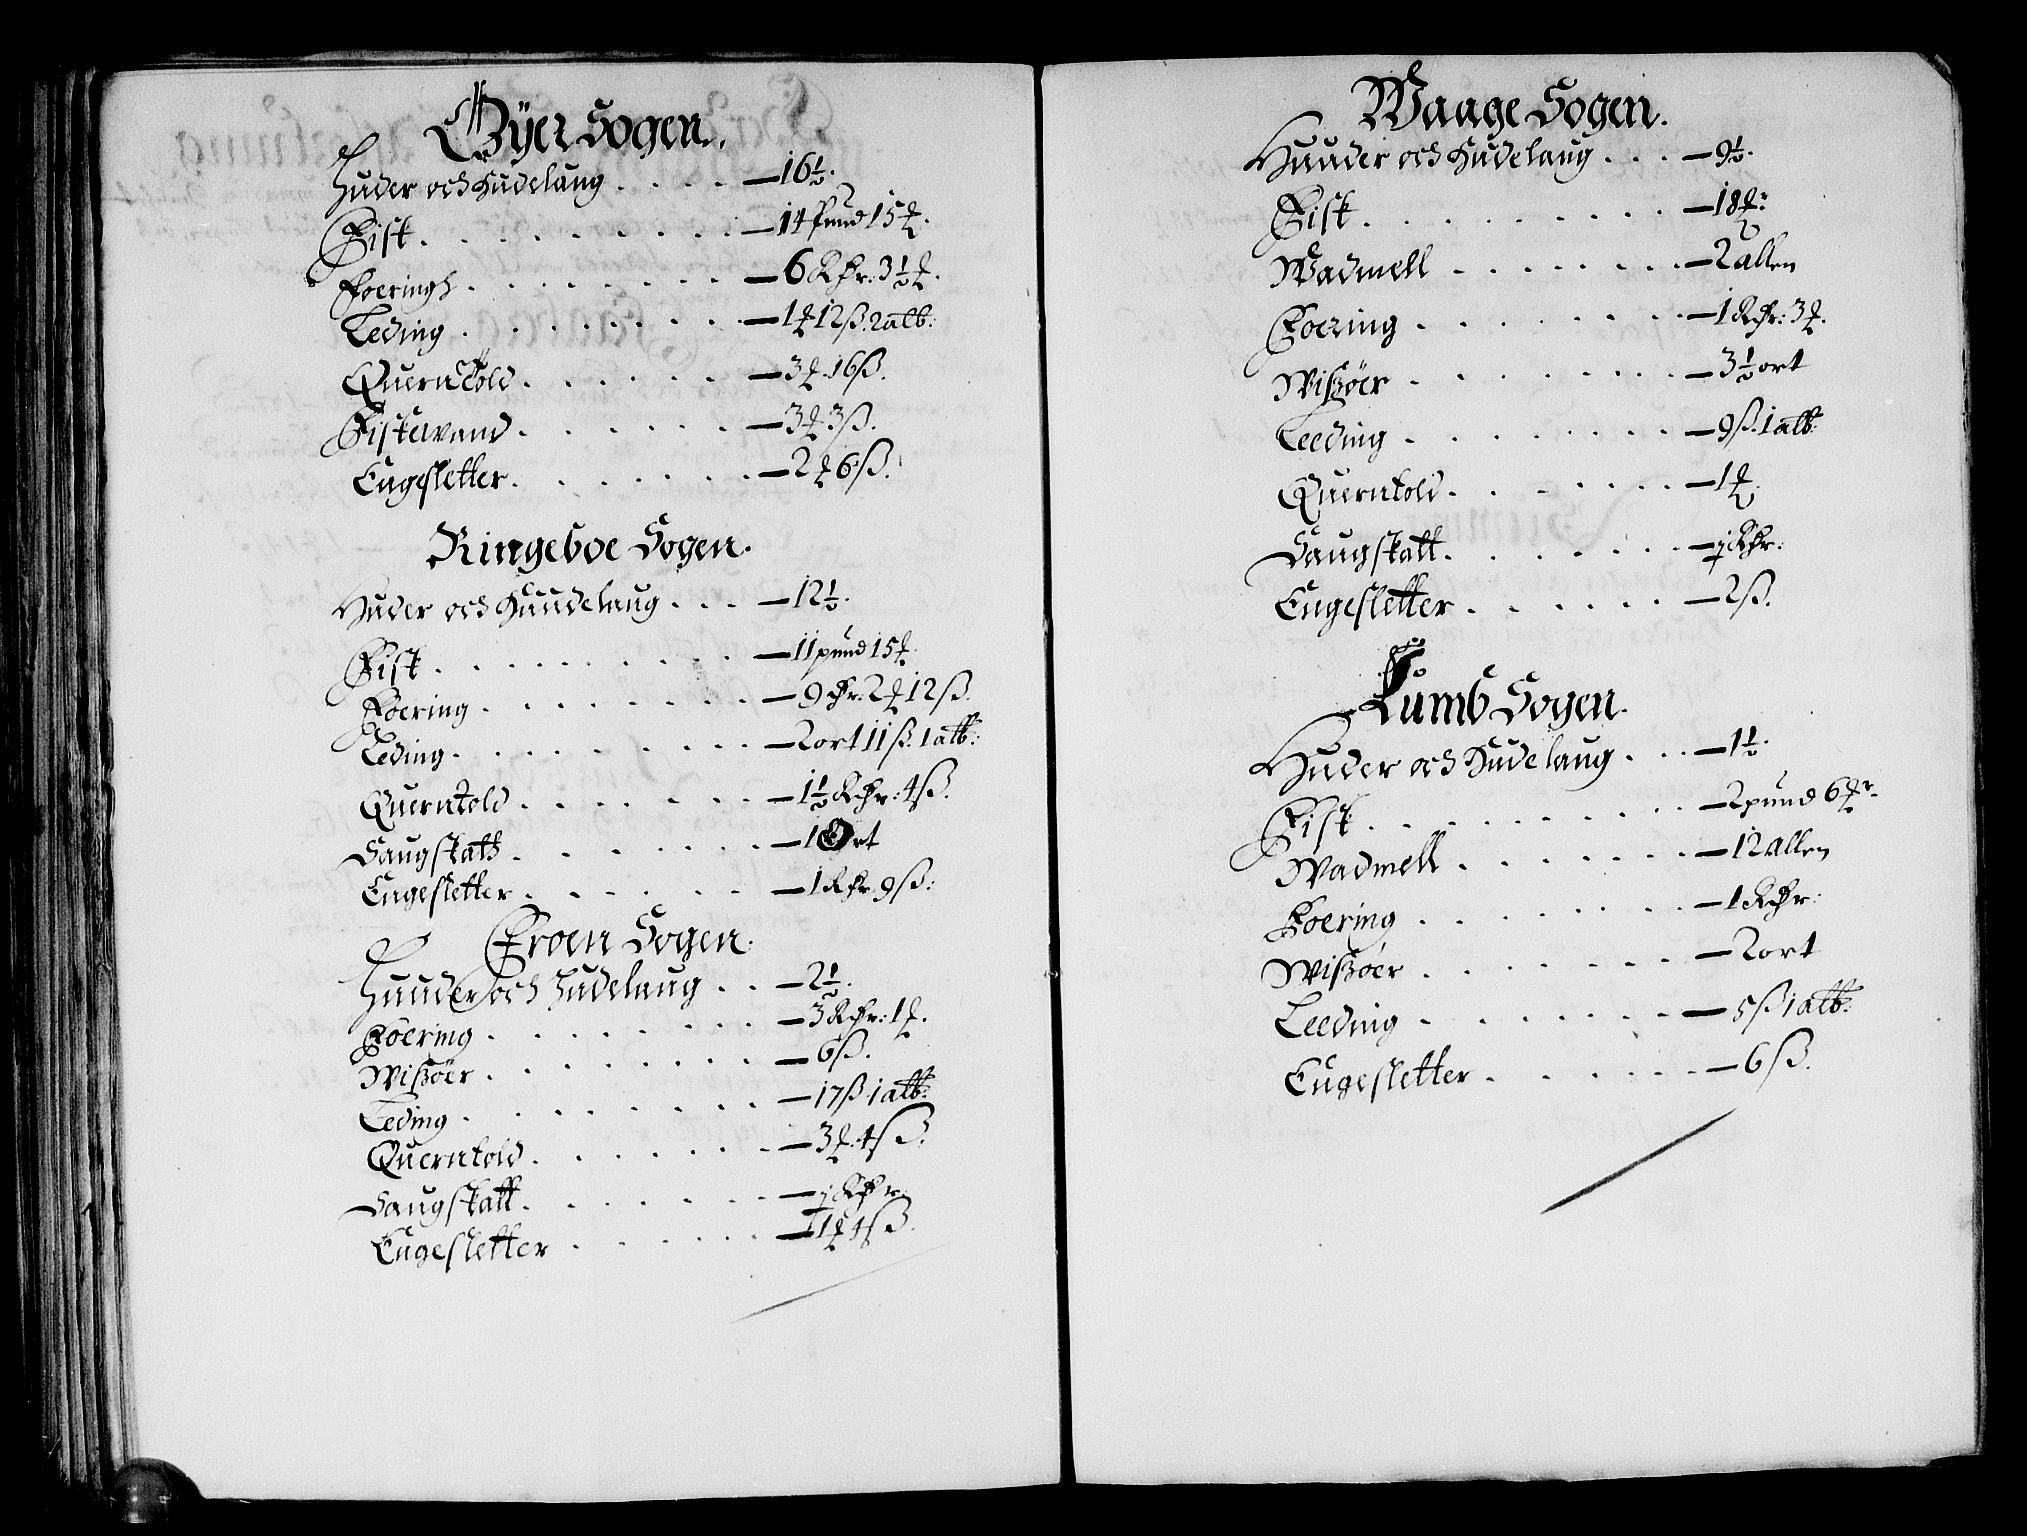 Øÿer Sogen.
Huder och Hudelaug . . . . — 16½.
Fisk . . . . . . . . . — 14 Pund 15 ℔.
Foeringh . . . . . . . . — 6 Rdr: 3½ ℔.
Leding . . . . . . . . — 1 ℔ 12 ß. 2 alb:
Querntold . . . . . . — 3 ℔ 16 ß.
Fiskevand . . . . . . — 3 ℔ 3 ß.
Engesletter . . . . . . — 2 ℔ 6 ß.
Ringeboe Sogen.
Huder och Huudelaug . . . — 12½.
Fisk . . . . . . . . . — 11 pund 15 ℔
Foering . . . . . . . — 9 dr. 2 ℔ 12 ß.
Leding . . . . . . . . — 2 ort 11 ß. 1 alb:
Querntold . . . . . . — 1½ Rdr: 4 ß.
Saugskatt . . . . . . — 1 Ort
Engesletter . . . . . . — 1 Rdr. 9 ß:
Froen Sogen.
Huuder och Hudelaug . . — 2½.
Foering . . . . . . . — 3 Rdr: 1 ℔.
Wißøer . . . . . . . — 6 ß.
Leding . . . . . . . . — 17 ß 1 alb:
Querntold . . . . . . — 3 ℔. 4 ß.
Saugskatt . . . . . . — j Rdr.
Engesletter . . . . . — 1 ℔ 4 ß.
Waage Sogen.
Huuder och Hudelaug . . . — 9½.
Fisk . . . . . . . . — 18 ℔:
Wadmell . . . . . . . — 2 allen
Foering . . . . . . . — 1 Rdr: 3 ℔.
Wißøer . . . . . . . — 3½ ort
Leeding . . . . . . . — 9 ß. 1 alb:
Querntold . . . . . . — 1 ℔.
Saugskatt . . . . . . — j Rdr:
Engesletter . . . . . . — 2 ß.
Lumb Sogen.
Huder och Hudelaug . . . — 1½.
Fisk . . . . . . . . . — 2 pund 6 ℔r.
Wadmell . . . . . . . — 12 allen
Foering . . . . . . . — 1 Rdr:
Wißøer . . . . . . . — 2 ort
Leeding . . . . . . . — 5 ß 1 alb:
Engesletter . . . . . . — 6 ß.